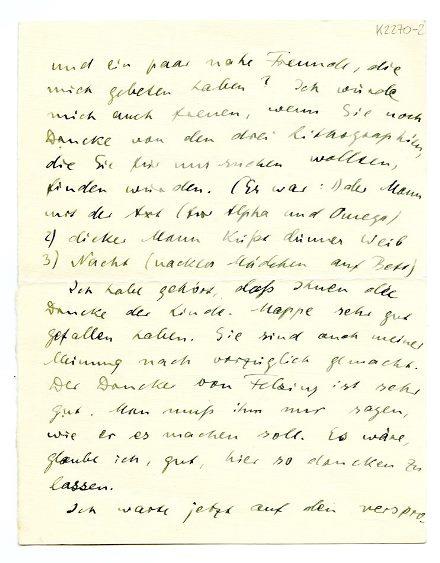 K2270-2
und ein paar nahe Freunde, die
mich gebeten haben? Ich würde
mich auch freuen, wenn Sie noch
Drucke von den drei Lithographien,
die Sie für uns suchen wollten,
finden würden. (Es war: 1) der Mann
mit der Axt (für Alpha und Omega)
2) dicker Mann küßt dünnes Weib
3) Nacht (nacktes Mädchen auf Bett)
Ich habe gehört, daß Ihnen die
Drucke der Linde-Mappe sehr gut
gefallen haben. Sie sind auch meiner
Meinung nach vorzüglich gemacht.
Der Drucker von Felsing ist sehr
gut. Man muß ihm nur sagen,
wie er es machen soll. Es wäre,
glaube ich, gut, hier so drucken zu
lassen.
Ich warte jetzt auf den verspro-